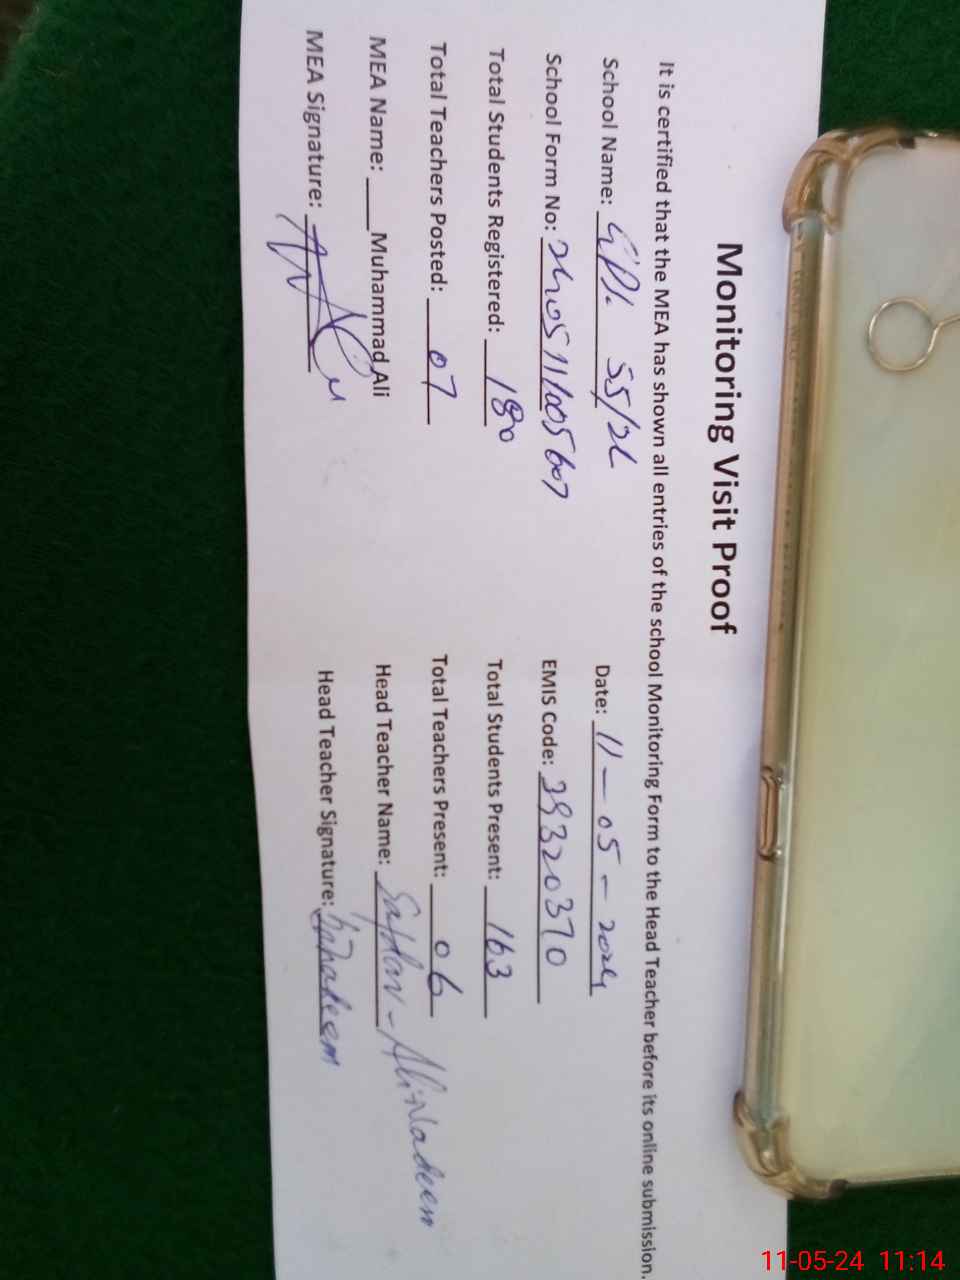 Monitoring Visit Proof
It is certified that the MEA has shown all entries of the school Monitoring Form to the Head Teacher before its online submission.
School Name: 55/2L Date: 11-05-2024
School Form No: EMIS Code: 39320370
Total Students Registered: 180 Total Students Present: 163
Total Teachers Posted: 07 Total Teachers Present: 06
MEA Name: Muhammad Ali Head Teacher Name:
MEA Signature: Head Teacher Signature:
11-05-24 11:14